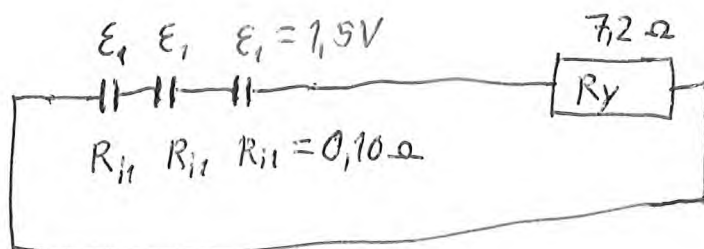 ε₁ ε₁ ε₁ = 1,5V
7,2 Ω
Ry
Ri1 Ri1 Ri1 = 0,10 Ω